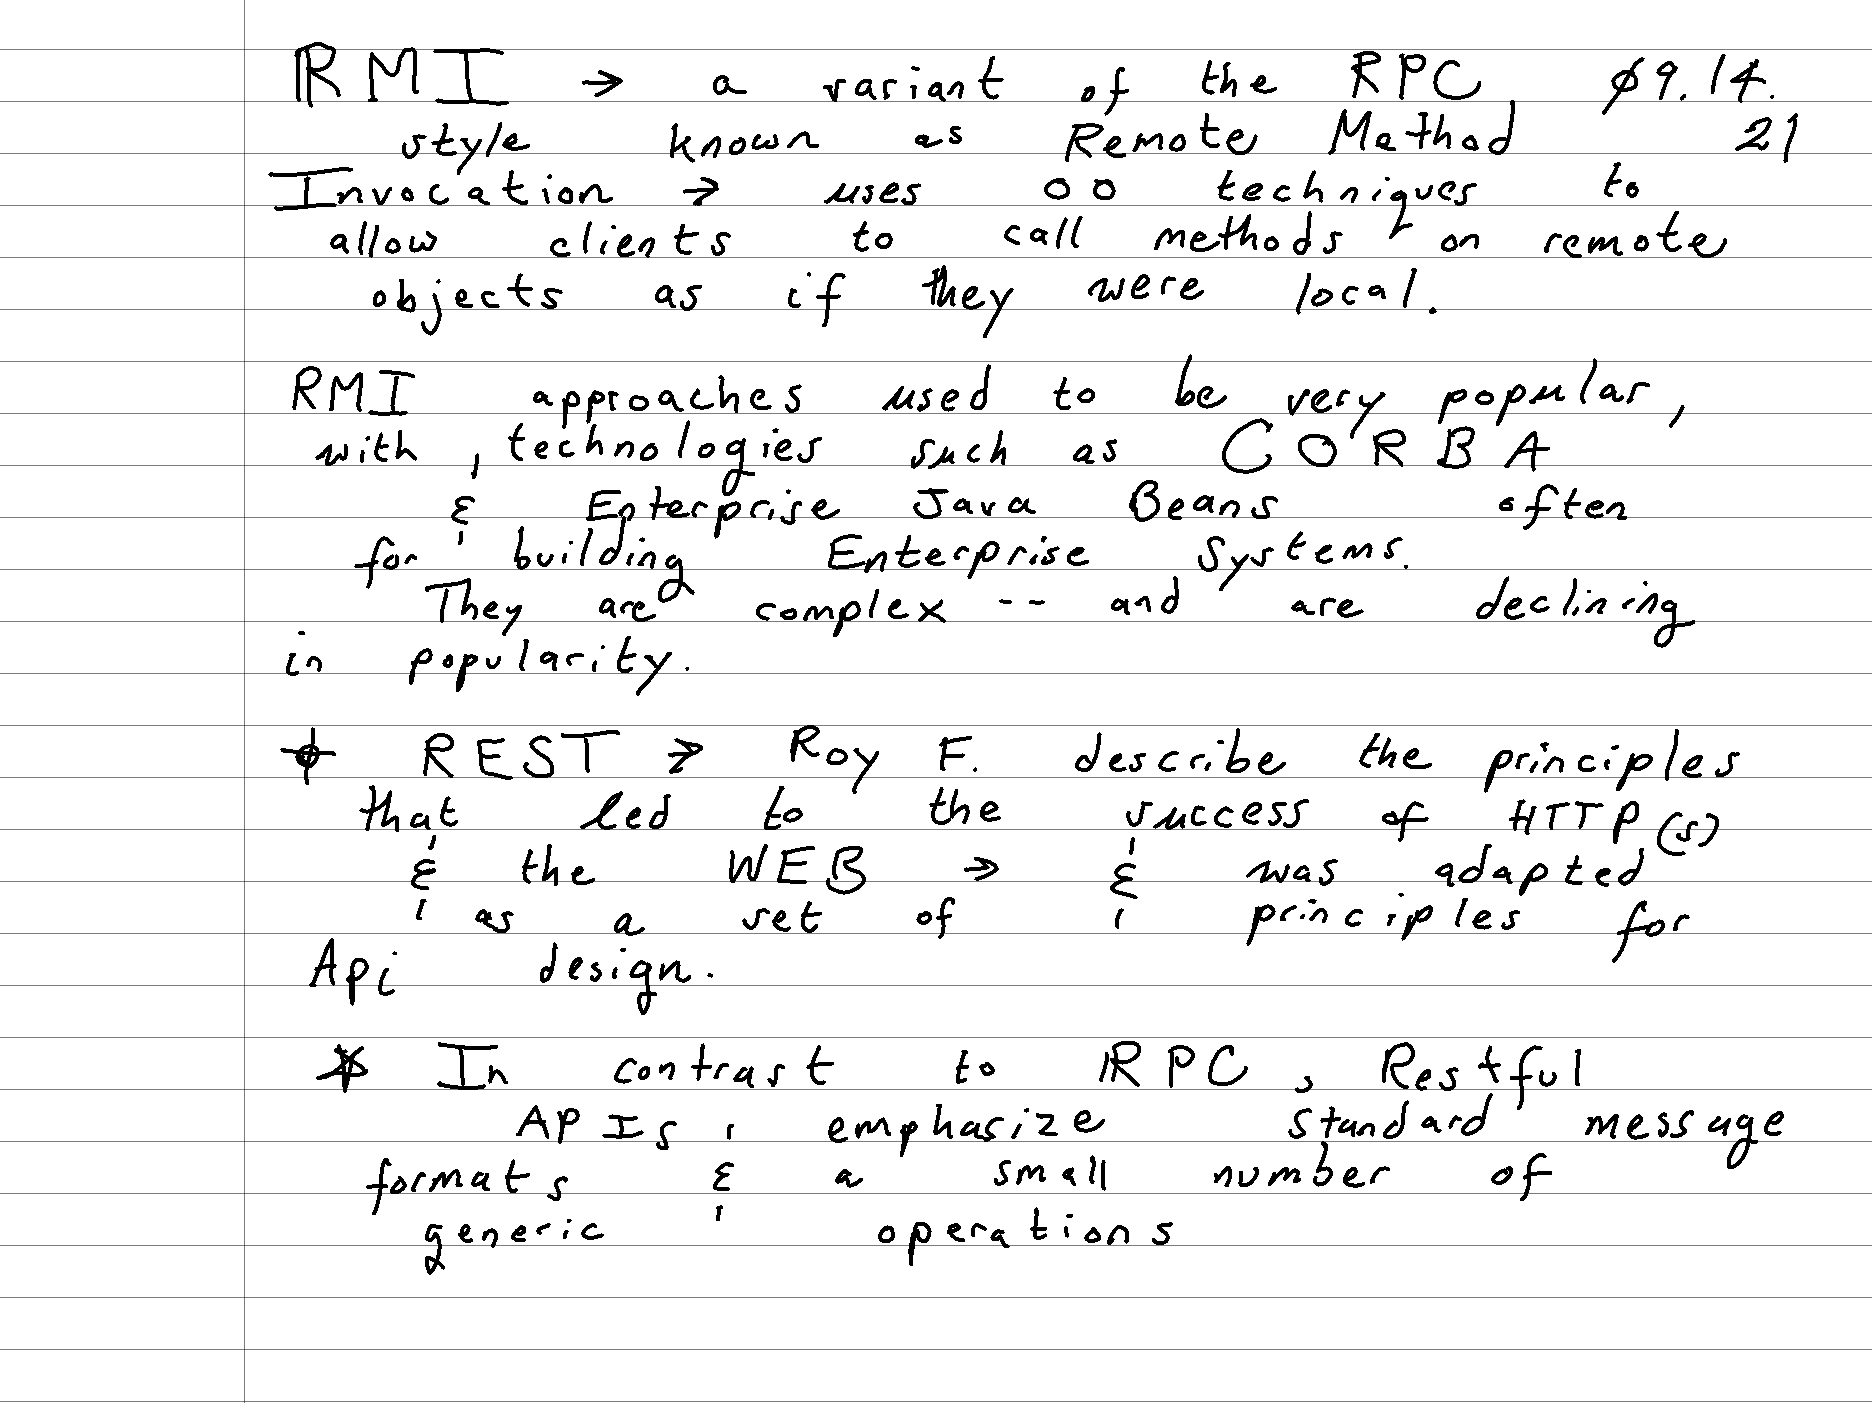 RMI → a variant of the RPC, Ø9.14.
style known as Remote Method 21
Invocation → uses OO techniques to
allow clients to call methods on remote
objects as if they were local.
RMI approaches used to be very popular,
with technologies such as CORBA
& Enterprise Java Beans often
for building Enterprise Systems.
They are complex -- and are declining
in popularity.
REST → Roy F. describe the principles
that led to the success of HTTP(s)
& the WEB → & was adapted
as a set of principles for
Api design.
* In contrast to RPC, Restful
APIs emphasize standard message
formats & a small number of
generic operations